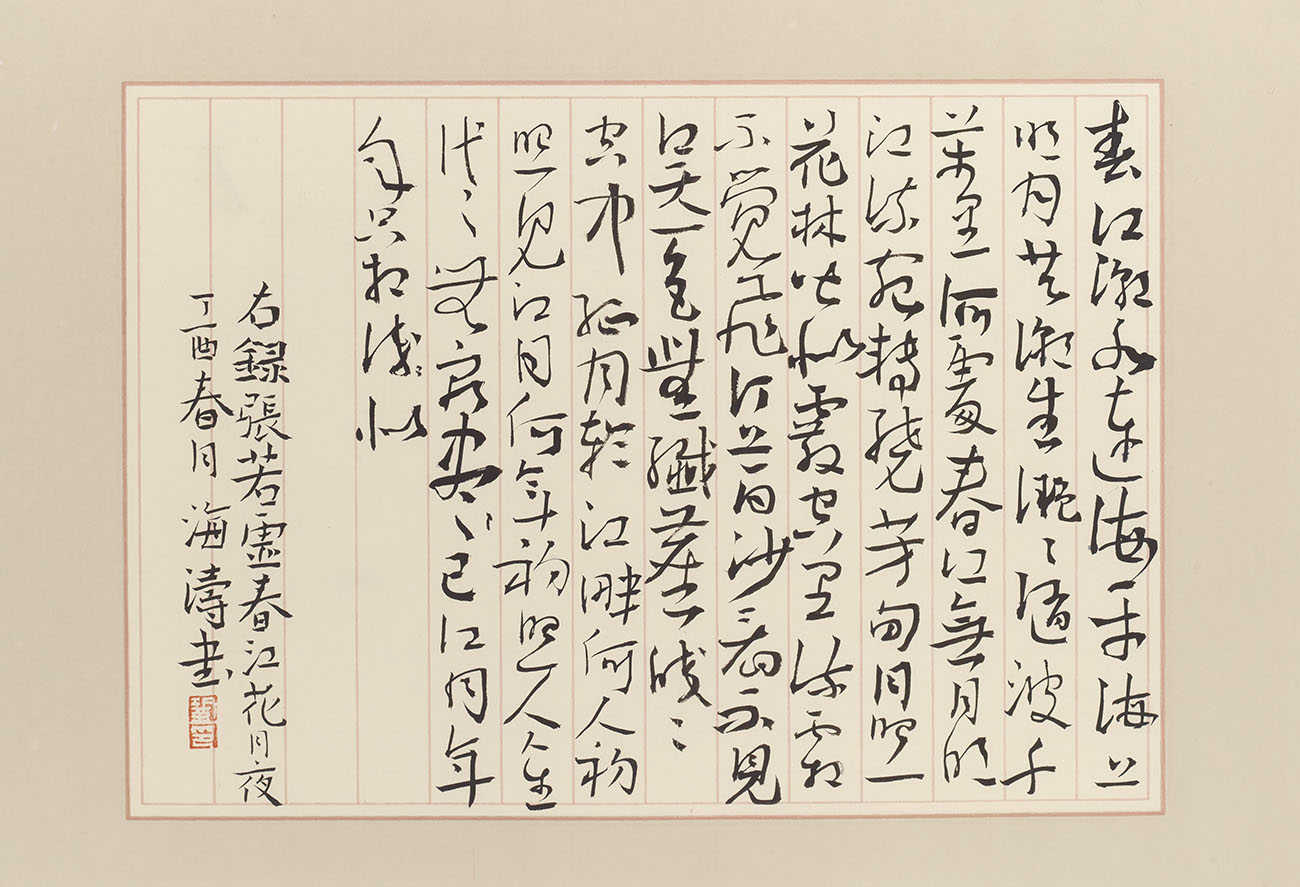 春江潮水連海平海上
明月共潮生灩〻隨波千
萬里何處春江無月明
江流宛轉繞芳甸月照
花林皆似霰空里流霜
不覺飛汀上白沙看不見
江天一色無纖塵皎〻
空中孤月輪江畔何人初
照見江月何年初照人人生
代〻無窮盡已江月年
年只相似
右錄張若虛春江花月夜
丁酉春月海濤書